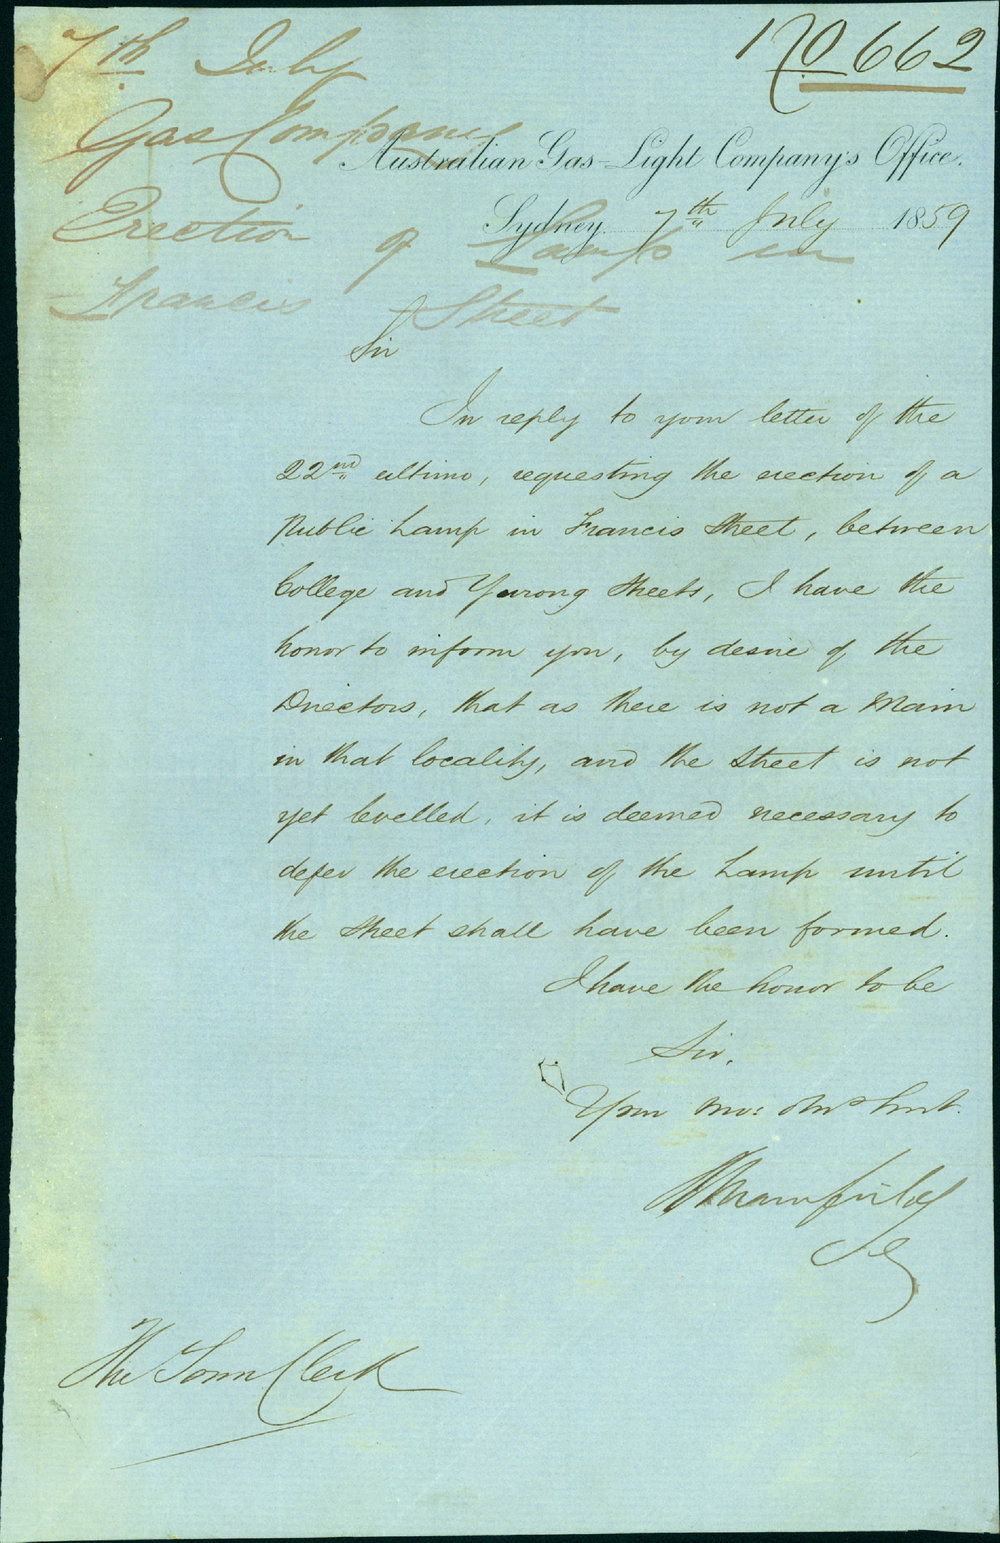 7th July
No 662
Gas Company
Australian Gas-Light Company's Office.
Erection of Lamp in
Sydney 7th July 1859
Francis Street
Sir
In reply to your letter of the
22nd ultimo, requesting the erection of a
Public Lamp in Francis Street, between
College and Yurong Streets, I have the
honor to inform you, by desire of the
Directors, that as there is not a Main
in that locality, and the Street is not
yet levelled, it is deemed necessary to
defer the erection of the Lamp until
the Street shall have been formed.
I have the honor to be
Sir,
Your Mo: Obt Servt.
Mansfield
The Town Clerk